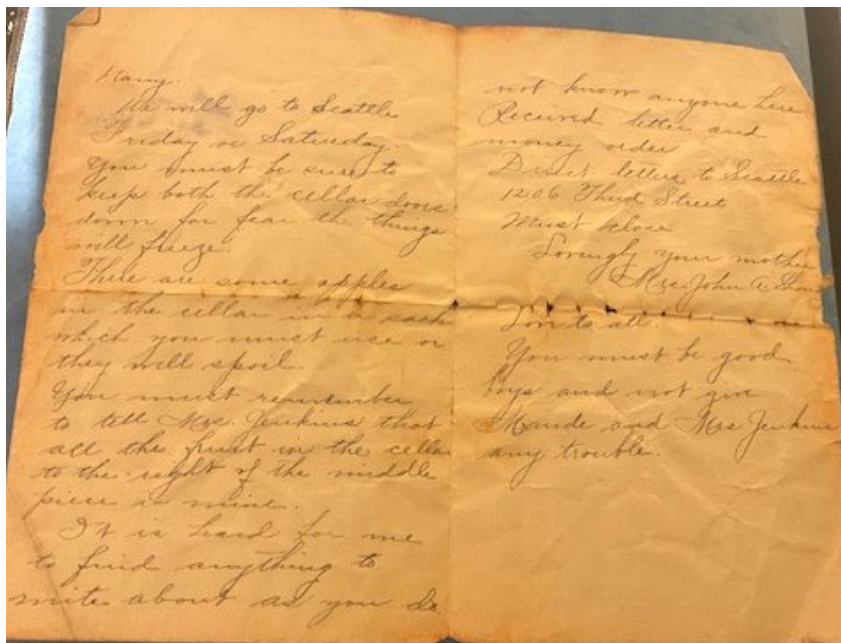 We will go to Seattle
Friday or Saturday.
You must be sure to
keep both the cellar doors
down for fear the things
will freeze.
There are some apples
in the cellar in a sack
which you must use or
they will spoil.
You must remember
to tell Mrs. Jenkins that
all the fruit in the cellar
to the right of the middle
piece is mine.
It is hard for me
to find anything to
write about as you do
not know anyone here
Received letter and
money order
Direct letters to Seattle
1206 Third Street
Must close
Lovingly your mother
Mrs. John A.
to all
You must be good
boys and not give
Maude and Mrs Jenkins
any trouble.